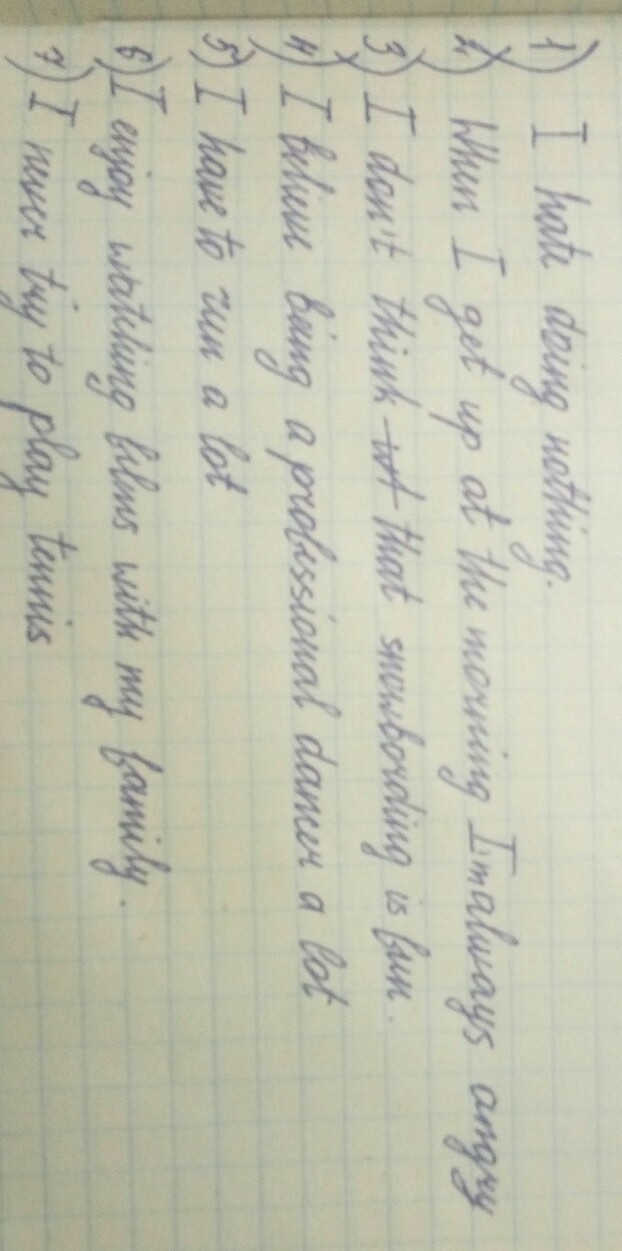 1) I hate doing nothing.
2) When I get up at the morning I'm always angry
3) I don't think that snowbording is fun.
4) I believe being a professional dancer a lot
5) I have to run a lot
6) I enjoy watching films with my family.
7) I never try to play tennis